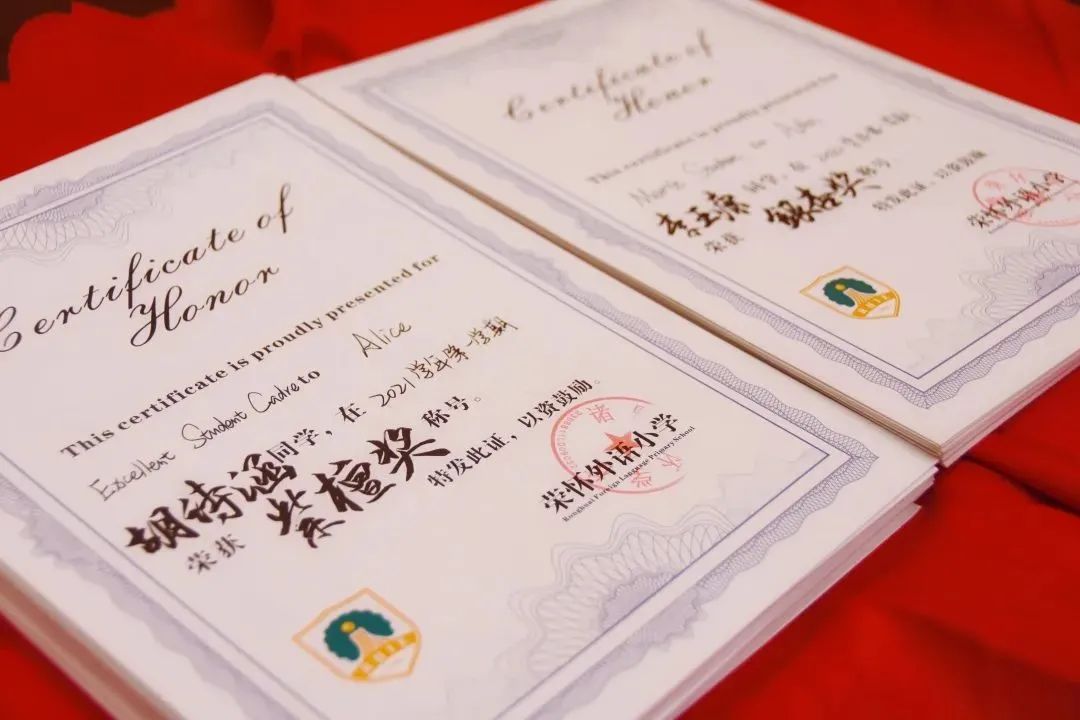 Certificate of
Honor
This certificate is proudly presented for
Excellent Student Cadre to Alice
胡诗涵同学，在2021学年第一学期
荣获紫檀奖称号。
特发此证，以资鼓励。
荣怀外语小学
Ronghuai Foreign Language Primary School
Certificate of
Honor
This certificate is proudly presented for
Merit Student to
同学，在
荣获银杏奖称号
特发此证，以资鼓励
荣怀外语小学